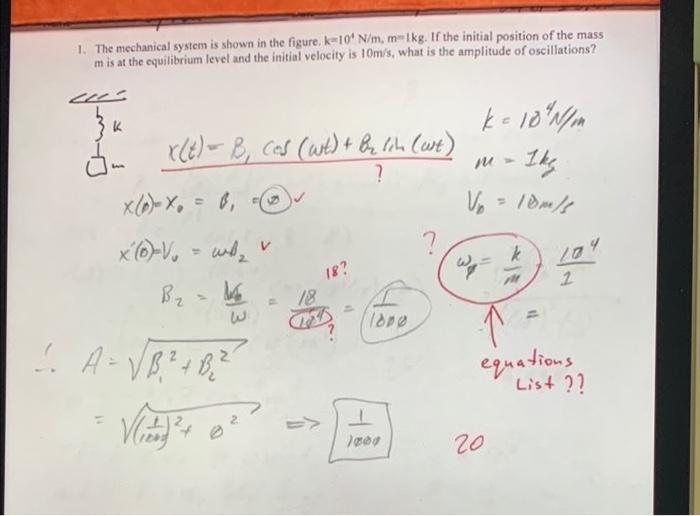 1. The mechanical system is shown in the figure. k=10⁴ N/m, m=1kg. If the initial position of the mass
m is at the equilibrium level and the initial velocity is 10m/s, what is the amplitude of oscillations?
k
m
k = 10⁴ N/m
x(t) = B₁ cos(ωt) + B₂ sin(ωt)
?
m = 1kg
x(0) = x₀ = B₁ = 0 ✓
V₀ = 10m/s
x'(0) = V₀ = ωB₂ ✓
?
ω₀ = k/m = 10⁴/1
=
18?
B₂ = V₀/ω = 10/10⁴ = 1/1000
?
equations
List ??
∴ A = √(B₁² + B₂²)
= √((1/1000)² + 0²) => 1/1000
20